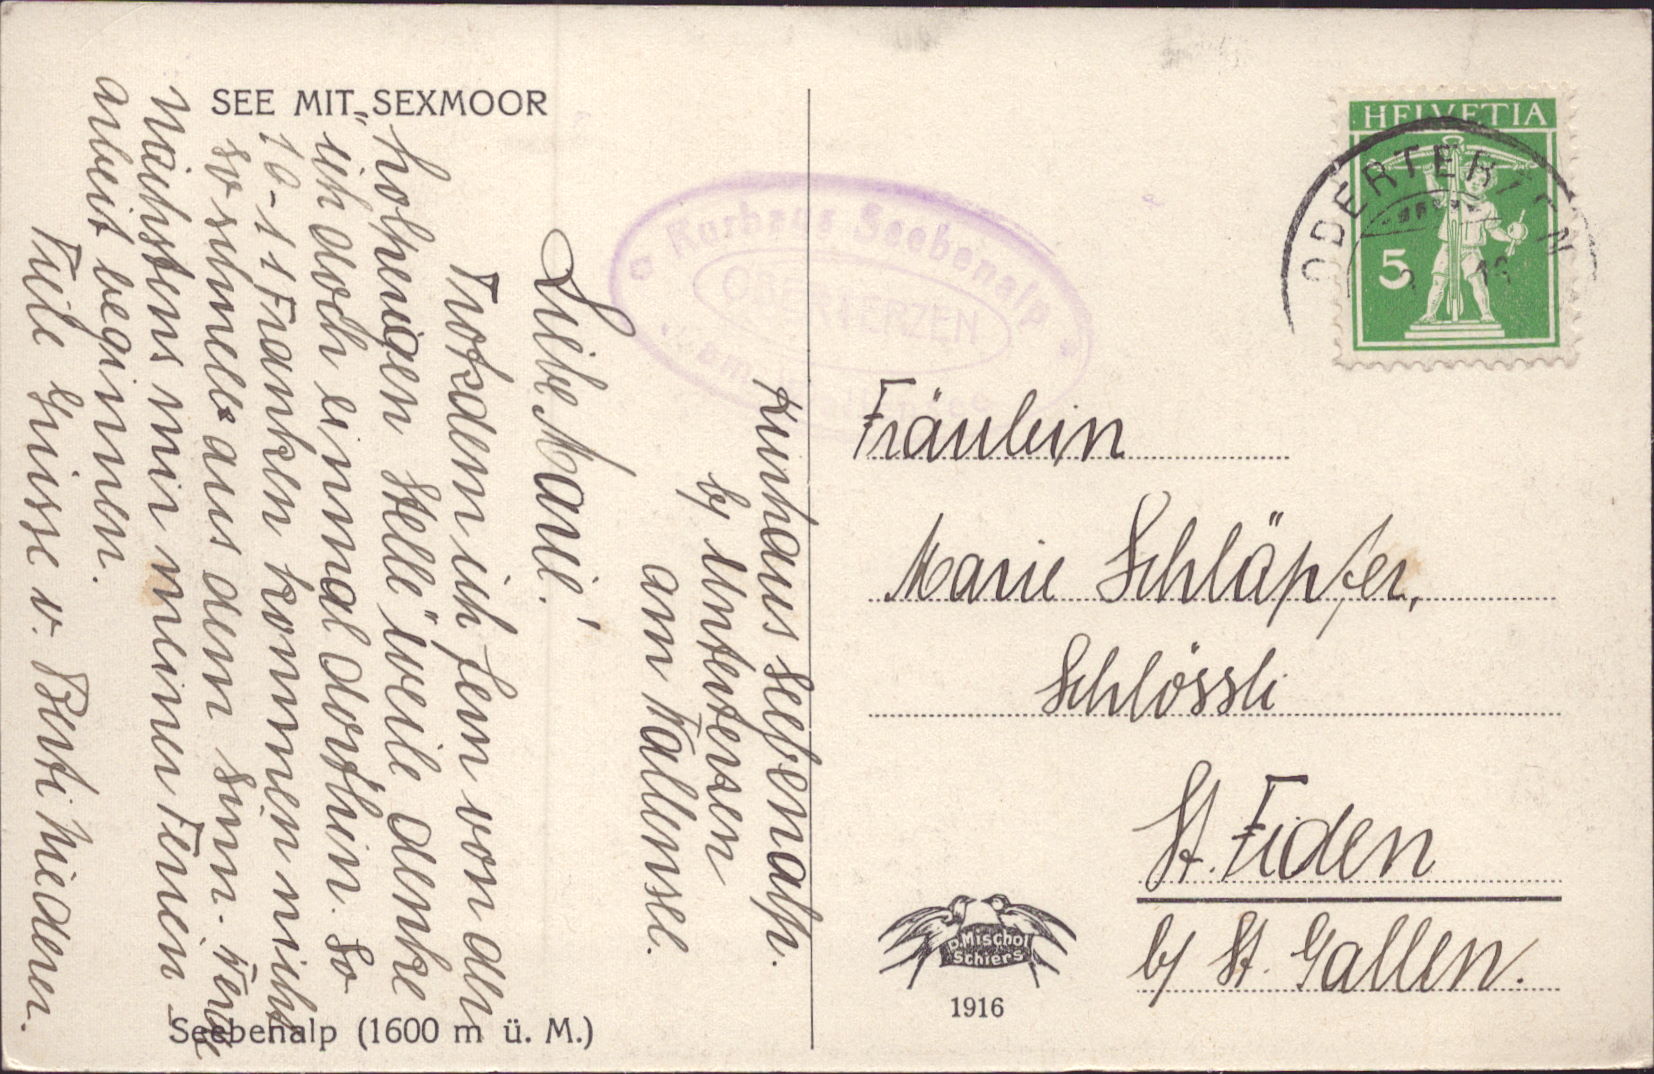 SEE MIT SEXMOOR
Kurhaus Seebenalp.
b/ Unterterzen
am Wallensee.
Liebe Marie!
Trotzdem ich fern von der
„holperigen Stelle" weile denke
ich doch einmal dorthin. So
10-11 Franken kommen nicht
so schnell aus dem Sinn.
Nächstens wir meinen Ferien
arbeit beginnen.
Viele Grüsse v. Berti Niederer.
Seebenalp (1600 m ü. M.)
Kurhaus Seebenalp
OBERTERZEN
HELVETIA
5
OBERTERZEN
Fräulein
Marie Schläpfer,
Schlössli
St. Fiden
b/ St. Gallen.
D. Mischol
Schiers
1916